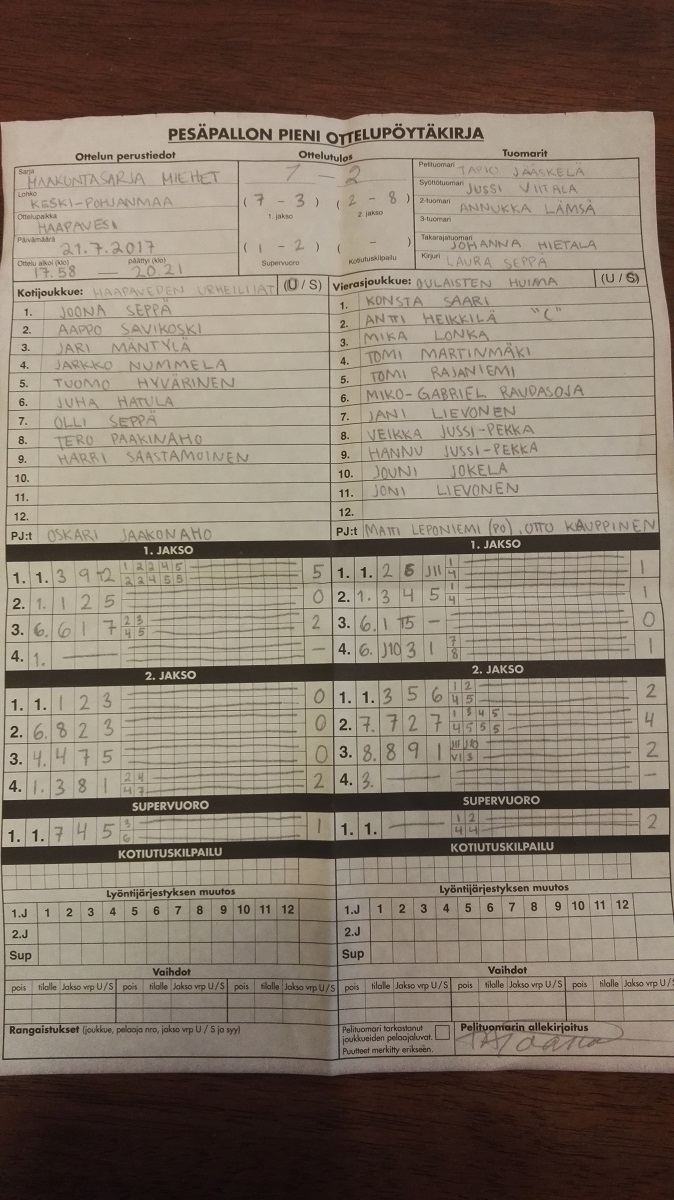 PESÄPALLON PIENI OTTELUPÖYTÄKIRJA
Ottelun perustiedot
Sarja
MAAKUNTASARJA MIEHET
Lohko
KESKI-POHJANMAA
Ottelupaikka
HAAPAVESI
Päivämäärä
21.7.2017
Ottelu alkoi (klo) päättyi (klo)
17.58 — 20.21
Ottelutulos
1 - 2
( 7 - 3 ) ( 2 - 8 )
1. jakso 2. jakso
( 1 - 2 ) ( - )
Supervuoro Kotiutuskilpailu
Tuomarit
Pelituomari TAPIO JÄÄSKELÄ
Syöttötuomari JUSSI VIITALA
2-tuomari ANNUKKA LÄMSÄ
3-tuomari
Takarajatuomari JOHANNA HIETALA
Kirjuri LAURA SEPPÄ
Kotijoukkue: HAAPAVEDEN URHEILIJAT (U / S)
1. JOONA SEPPÄ
2. AAPPO SAVIKOSKI
3. JARI MÄNTYLÄ
4. JARKKO NUMMELA
5. TUOMO HYVÄRINEN
6. JUHA HATULA
7. OLLI SEPPÄ
8. TERO PAAKINAHO
9. HARRI SAASTAMOINEN
10.
11.
12.
PJ:t OSKARI JAAKONAHO
Vierasjoukkue: OULAISTEN HUIMA (U / S)
1. KONSTA SAARI
2. ANTI HEIKKILÄ "C"
3. MIKA LONKA
4. TOMI MARTINMÄKI
5. TOMI RAJANIEMI
6. MIKO-GABRIEL RAUDASOJA
7. JANI LIEVONEN
8. VEIKKA JUSSI-PEKKA
9. HANNU JUSSI-PEKKA
10. JOUNI JOKELA
11. JONI LIEVONEN
12.
PJ:t MATTI LEPONIEMI (PO), OTTO KAUPPINEN
1. JAKSO
1. 1. 3 9 1 2 2 4 5 5
2 2 4 5 5
2. 1. 1 2 5 0
3. 6. 6 1 7 2 3 2
4 5
4. 1. — —
2. JAKSO
1. 1. 1 2 3 0
2. 6. 8 2 3 0
3. 4. 4 7 5 0
4. 1. 3 8 1 2 4 2
4 7
SUPERVUORO
1. 1. 7 4 5 3 1
6
KOTIUTUSKILPAILU
1. JAKSO
1. 1. 2 6 J11 1 1
4
2. 1. 3 4 5 1 1
4
3. 6. 1 T5 — 0
4. 6. J10 3 1 7 1
8
2. JAKSO
1. 1. 3 5 6 1 2 2
4 5
2. 7. 7 2 7 1 3 4 5 4
4 5 5 5
3. 8. 8 9 1 J11 J10 2
V1 3
4. 3. — —
SUPERVUORO
1. 1. — 1 2 2
4 4
KOTIUTUSKILPAILU
Lyöntijärjestyksen muutos
1.J 1 2 3 4 5 6 7 8 9 10 11 12
2.J
Sup
Lyöntijärjestyksen muutos
1.J 1 2 3 4 5 6 7 8 9 10 11 12
2.J
Sup
Vaihdot
pois tilalle Jakso vrp U/S pois tilalle Jakso vrp U/S pois tilalle Jakso vrp U/S
Vaihdot
pois tilalle Jakso vrp U/S pois tilalle Jakso vrp U/S pois tilalle Jakso vrp U/S
Rangaistukset (joukkue, pelaaja nro, jakso vrp U / S ja syy)
Pelituomari tarkastanut
joukkueiden pelaajaluvat.
Puutteet merkitty erikseen.
Pelituomarin allekirjoitus